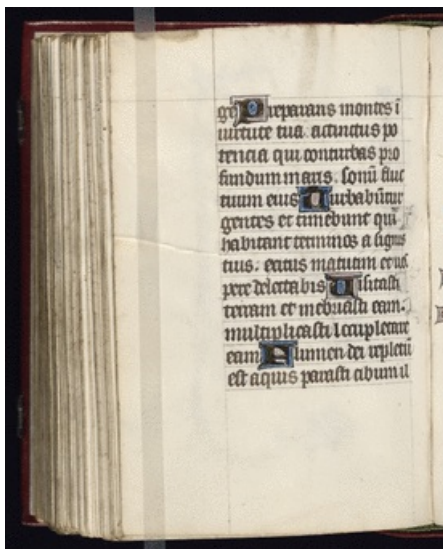 ge Preparans montes ĩ
uirtute tua. accinctus po
tencia qui conturbas pro
fundum maris. sonũ fluc
tuum eius Turbabũtur
gentes et timebunt qui
habitant terminos a signis
tuis. exitus matutini et ues
pere delectabis Uisitasti
terram et inebriasti eam.
multiplicasti locupletare
eam Flumen dei repletũ
est aquis parasti cibum il